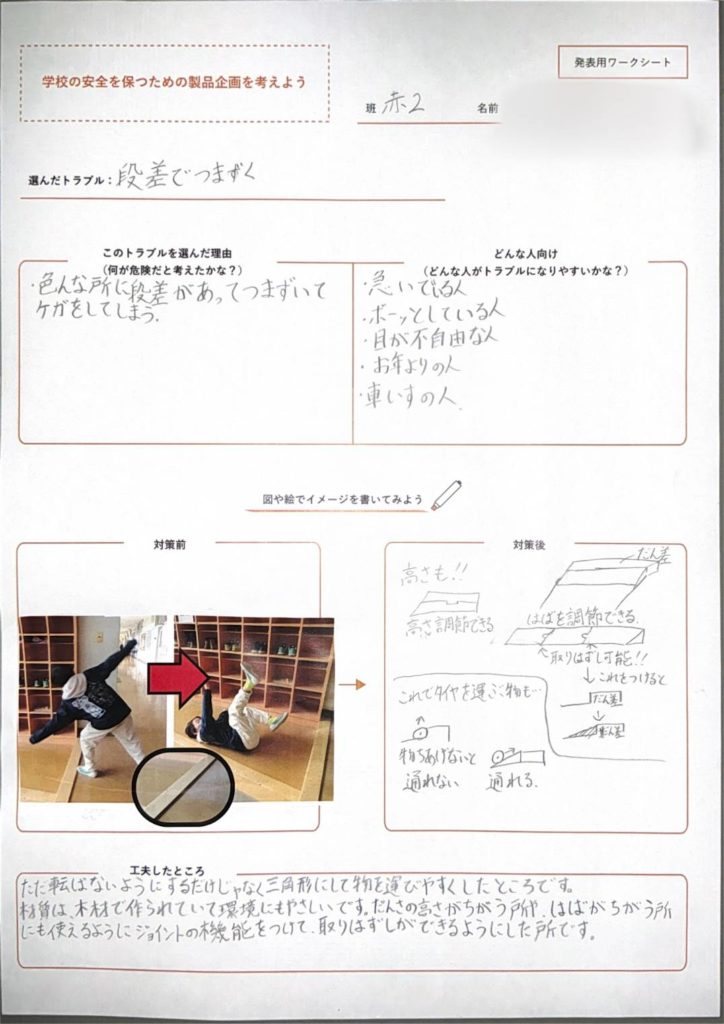 発表用ワークシート
学校の安全を保つための製品企画を考えよう
班 赤2 名前
選んだトラブル：段差でつまずく
このトラブルを選んだ理由
（何が危険だと考えたかな？）
・色んな所に段差があってつまずいて
ケガをしてしまう.
どんな人向け
（どんな人がトラブルになりやすいかな？）
・急いでいる人
・ボーッとしている人
・目が不自由な人
・お年よりの人
・車いすの人
図や絵でイメージを書いてみよう
対策前
対策後
高さも!!
高さ調節できる
だん差
はばを調節できる.
取りはずし可能!!
これをつけると
だん差
だん差
これでタイヤを運ぶ物も…
物もちあげないと
通れない
通れる.
工夫したところ
ただ転ばないようにするだけじゃなく三角形にして物を運びやすくしたところです。
材質は、木材で作られていて環境にもやさしいです。だんさの高さがちがう所や、はばがちがう所
にも使えるようにジョイントの機能をつけて、取りはずしができるようにした所です。